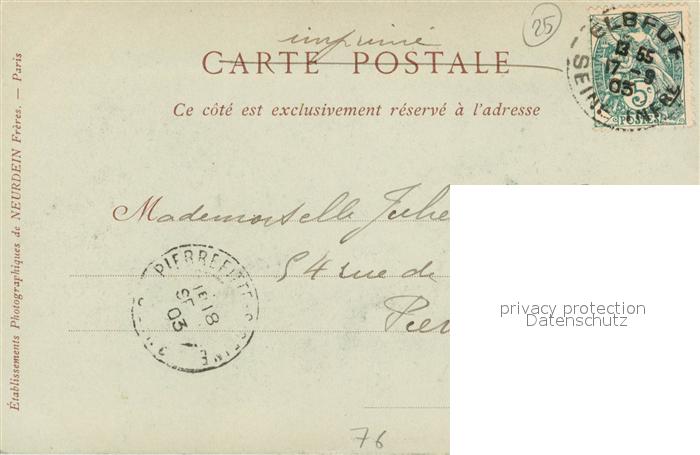 imprimé
25
CARTE POSTALE
Ce côté est exclusivement réservé à l'adresse
ELBEUF
13 55
17 - 9
03
SEINE
5c
POSTES
Mademoiselle Julie
54 rue de
PIERREFITTE
18
SE
03
SEINE
privacy protection
Datenschutz
76
Établissements Photographiques de NEURDEIN Frères. — Paris